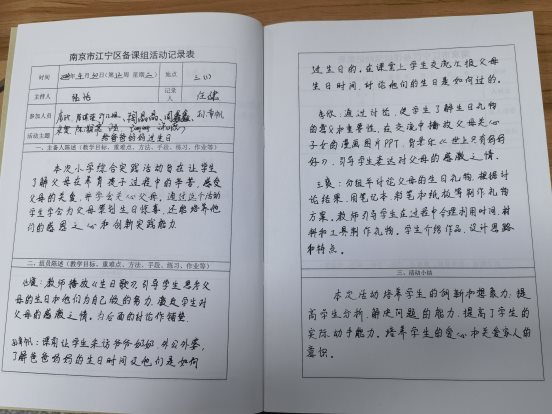 南京市江宁区备课组活动记录表
时间 年 月 日(第 周 星期 ) 地点 三(1)
主持人 记录人
参加人员 孙帆
活动主题 给爸爸妈妈过生日
一、主备人陈述（教学目标、重难点、方法、手段、练习、作业等）
本次小学综合实践活动旨在让学生
了解父母在养育孩子过程中的辛苦，感受
父母的关爱，并学会关心父母。通过这个活动
学生学会为父母策划生日惊喜，还能培养他
们的感恩之心和创新实践能力。
二、组员陈述（教学目标、重难点、方法、手段、练习、作业等）
教师播放《生日歌》，引导学生思考父
母的生日和他们为自己做的努力，激发学生对
父母的感激之情。为后面的讨论作铺垫。
课前让学生采访爷爷奶奶、外公外婆，
了解爸爸妈妈的生日时间及他们是如何
过生日的。在课堂上学生交流汇报父母
生日时间，讨论他们的生日是如何过的。
通过讨论，使学生了解生日礼物
的意义和重要性。在交流中播放父母关心
子女的漫画图片PPT，背景乐《世上只有妈妈
好》，引导学生表达对父母的感激之情。
分组来讨论父母的生日礼物，根据讨
论结果，用笔记本、彩笔和纸板等制作礼物
方案。教师引导学生在过程中合理利用时间、材
料和工具制作礼物。学生介绍作品，设计思路
和特点。
三、活动小结
本次活动培养学生的创新和想象力，提
高学生分析、解决问题的能力，提高了学生的
实际动手能力。培养学生的爱心和关爱家人的
意识。